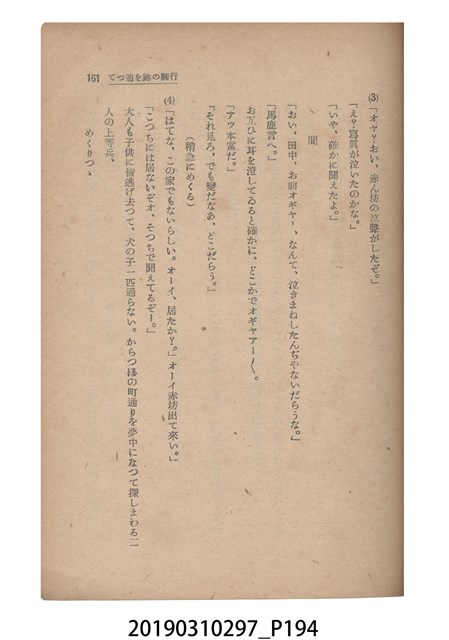 161 てつ追を跡の胸行
(3)「オヤ?おい、赤ん坊の泣聲がしたぞ。」
「え?寫眞が泣いたのかな。」
「いや、確かに聞えたよ。」
間
「おい、田中、お前オギャー、なんて、泣きまねしたんぢやないだらうな。」
「馬鹿言へ。」
お互ひに耳を澄してゐると確かに、どこかでオギャアー〱。
「アッ本當だ。」
「それ見ろ、でも變だなあ、どこだらう。」
(稍急にめくる)
(4)「はてな、この家でもないらしい。オーイ、居たか?。」オーイ赤坊出て來い。」
「こつちには居ないぞオ、そつちで聞えてるぞー。」
大人も子供に皆逃げ去つて、犬の子一匹通らない。からつぽの町通りを夢中になつて探しまわる二
人の上等兵、
めくりつゝ
20190310297_P194